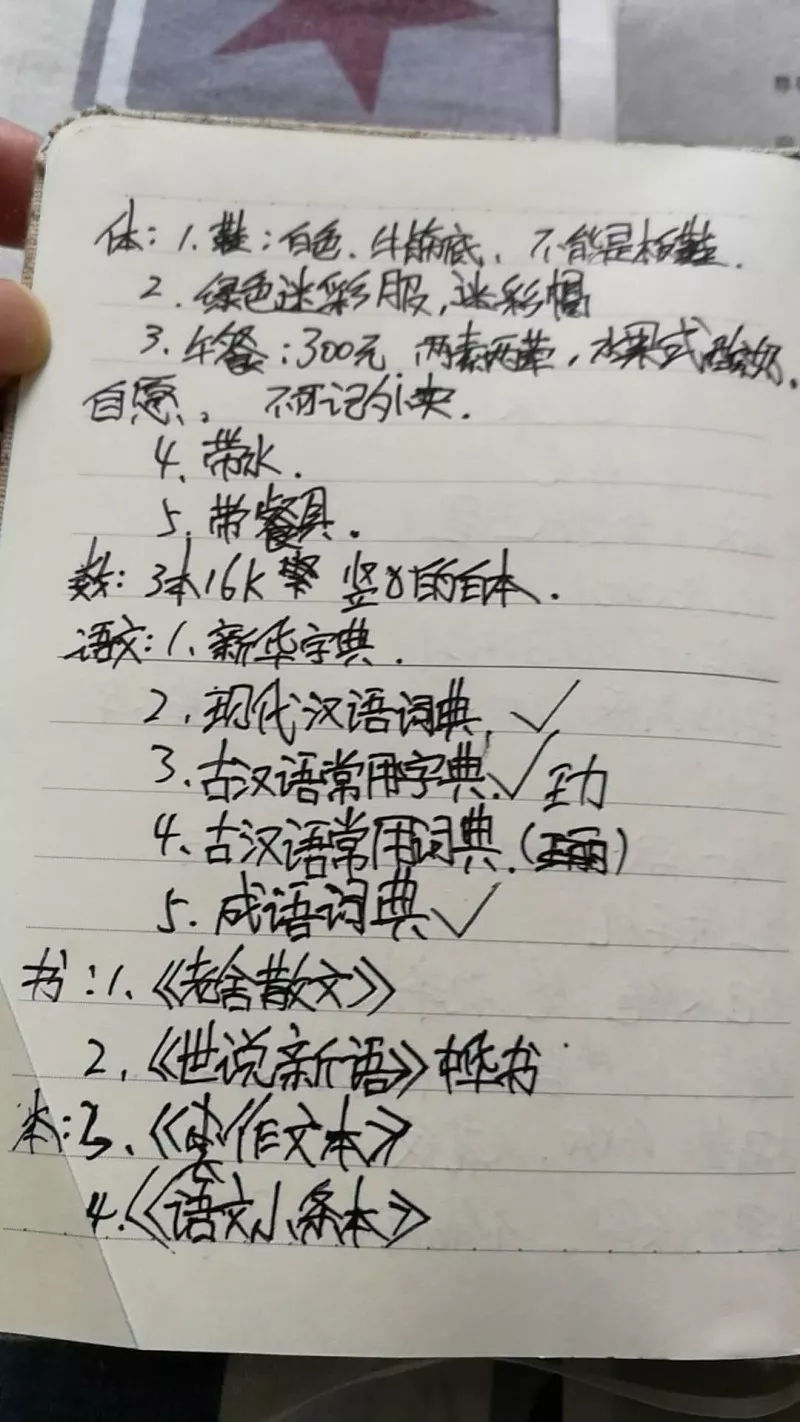 体：1.鞋：白色.牛筋底、不能是板鞋.
2.绿色迷彩服,迷彩帽
3.午餐：300元 两素两荤，水果或酸奶.
自愿。 不可记外卖.
4.带水.
5.带餐具.
数：3本16K 竖 的白本.
语文：1.新华字典.
2.现代汉语词典.✓
3.古汉语常用字典.✓ 王力
4、古汉语常用词典.()
5.成语词典✓
书：1、《老舍散文》
2、《世说新语》中华书
本：3、《作文本》
4.《语文小条本》